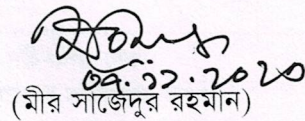 ০৭.১১.২০২০
(মীর সাজেদুর রহমান)